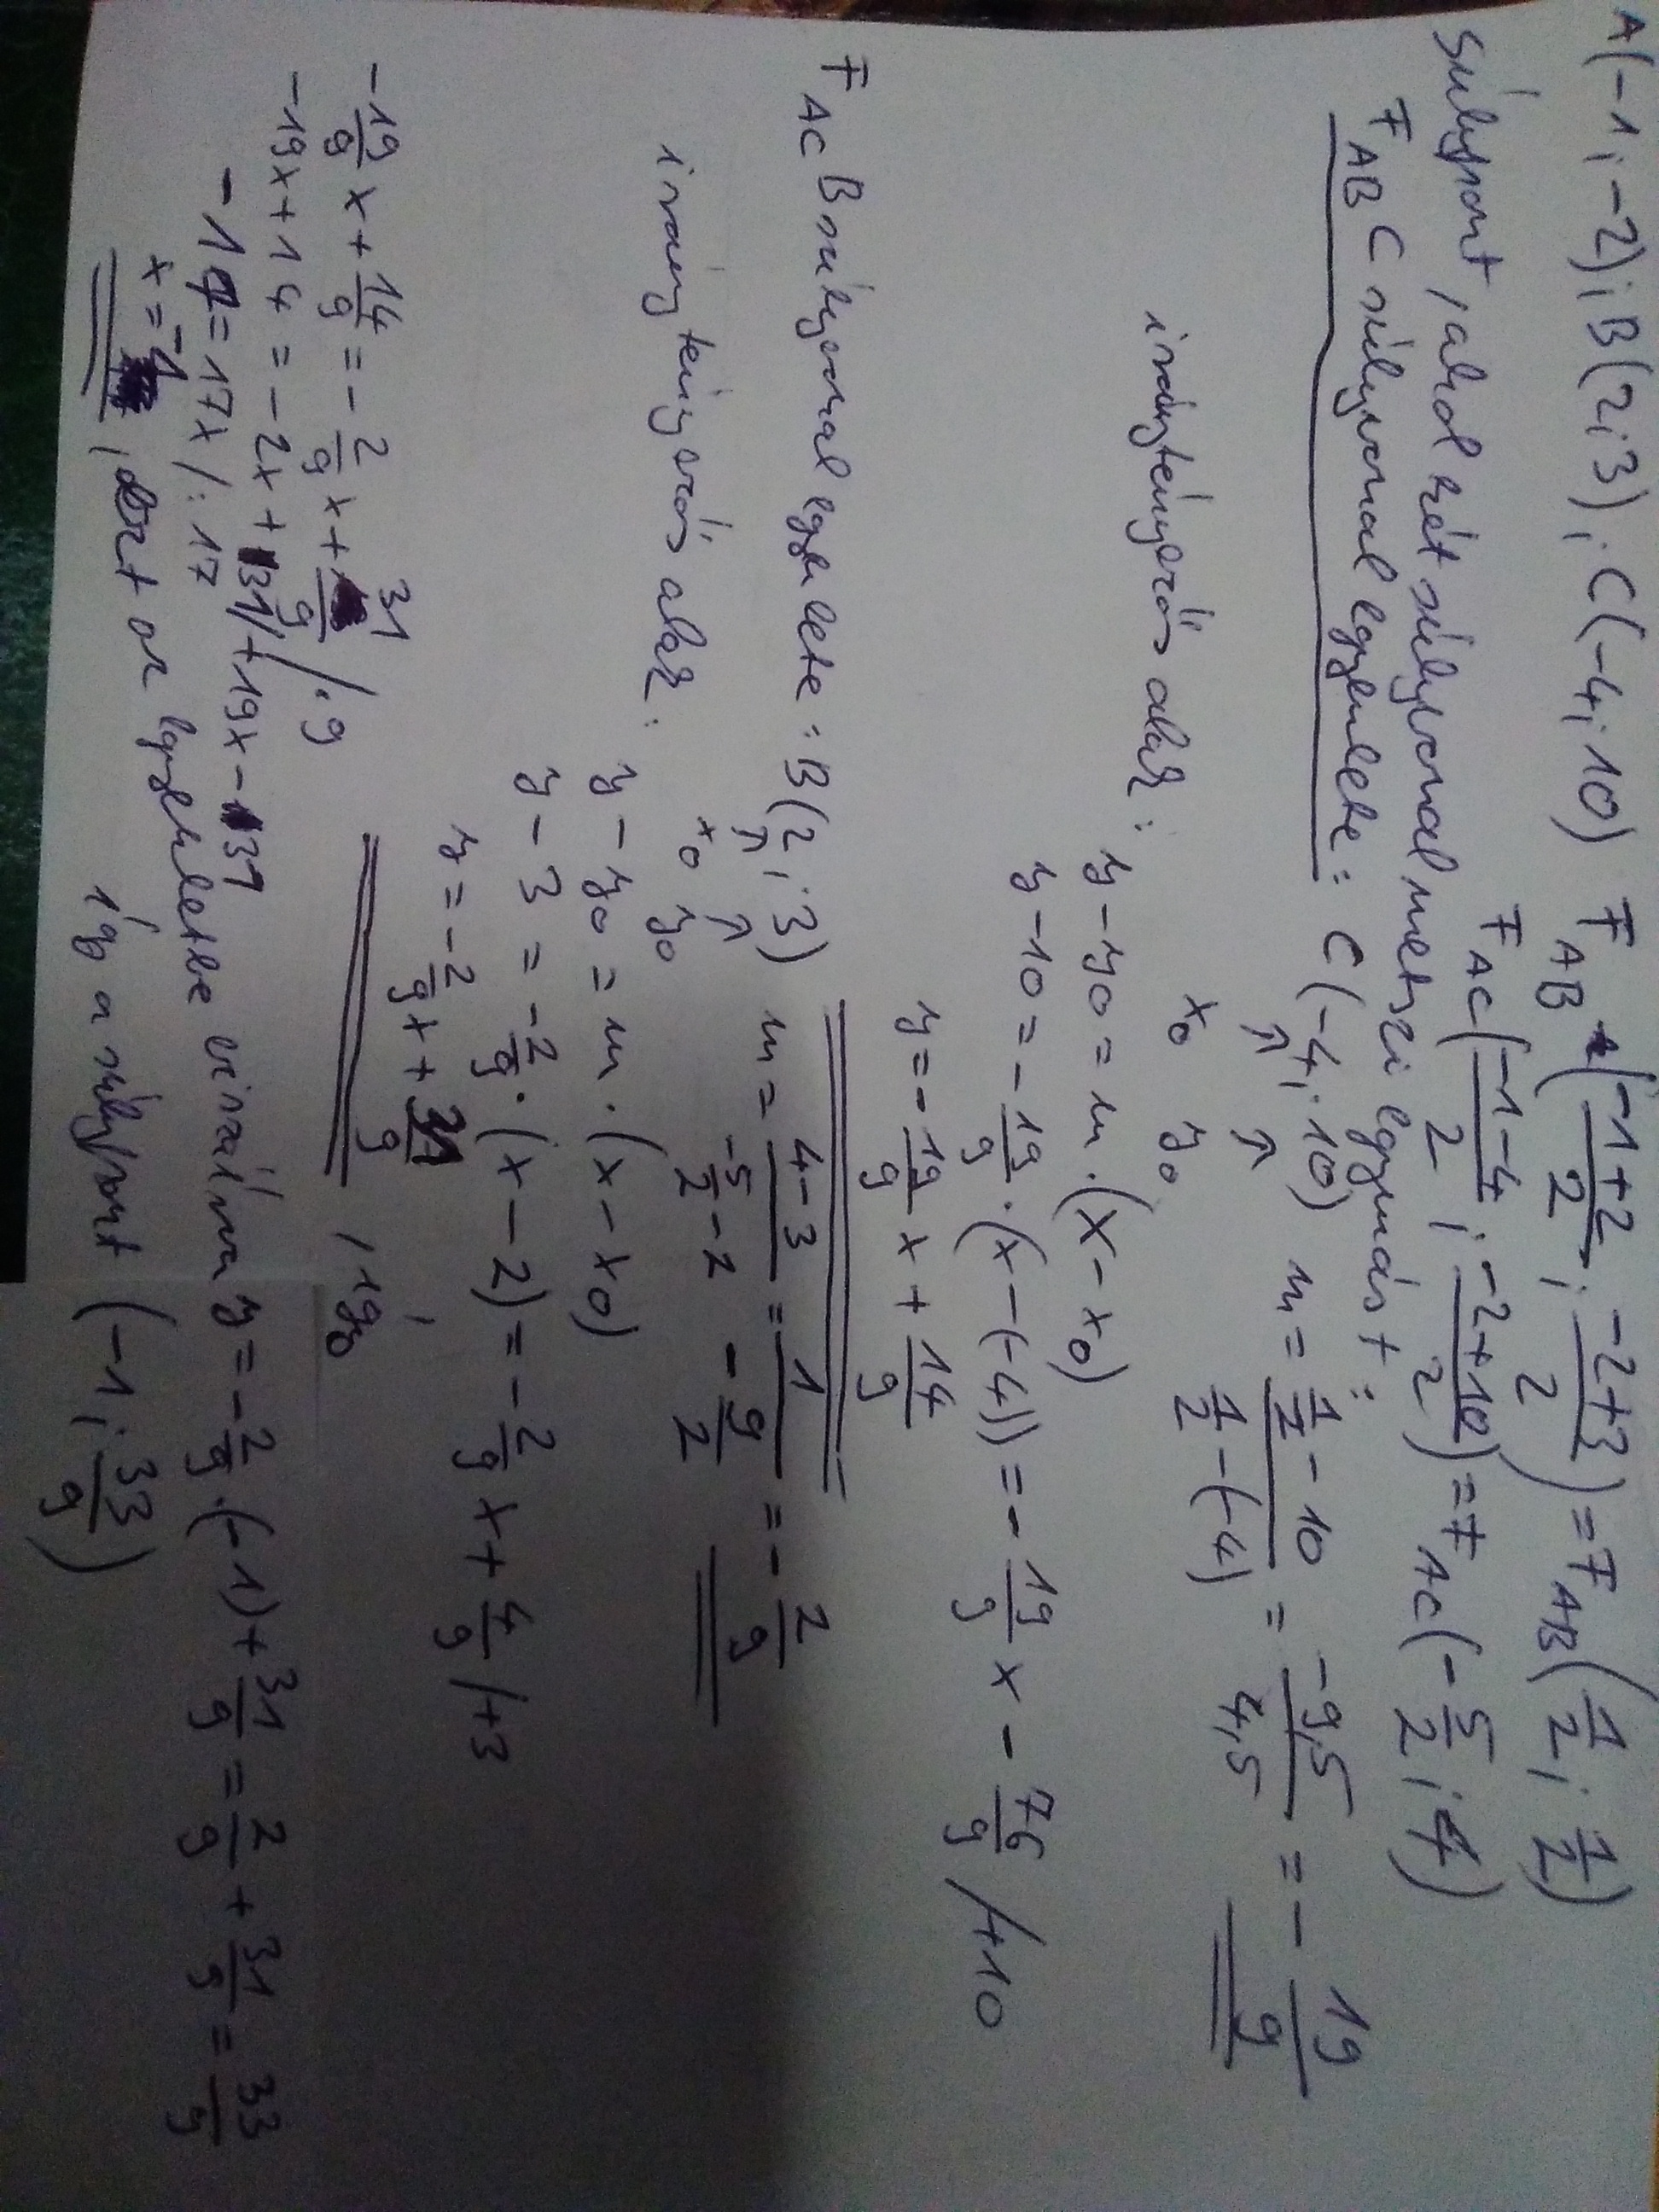 A(-1;-2); B(2;3); C(-4;10) F_AB (\frac{-1+2}{2}; \frac{-2+3}{2}) = F_AB(\frac{1}{2}; \frac{1}{2})
F_AC(\frac{-1-4}{2}; \frac{-2+10}{2}) = F_AC(-\frac{5}{2}; 4)
Súlypont, ahol két súlyvonal metszi egymást:
F_AB C súlyvonal egyenlete: C(-4; 10) m = \frac{\frac{1}{2}-10}{\frac{1}{2}-(-4)} = \frac{-9,5}{4,5} = -\frac{19}{9}
x0 y0
iránytényezős alak: y-y0 = m·(x-x0)
y-10 = -\frac{19}{9}·(x-(-4)) = -\frac{19}{9}x - \frac{76}{9} /+10
y = -\frac{19}{9}x + \frac{14}{9}
F_AC B súlyvonal egyenlete: B(2; 3) m = \frac{4-3}{\frac{-5}{2}-2} = \frac{1}{-\frac{9}{2}} = -\frac{2}{9}
x0 y0
iránytényezős alak: y-y0 = m·(x-x0)
y-3 = -\frac{2}{9}·(x-2) = -\frac{2}{9}x + \frac{4}{9} /+3
y = -\frac{2}{9}x + \frac{31}{9}, így
-\frac{19}{9}x + \frac{14}{9} = -\frac{2}{9}x + \frac{31}{9} /·9
-19x+14 = -2x+31 /+19x-31
-17 = 17x /:17
x = -1, ezt az egyenletbe vissza y = -\frac{2}{9}·(-1) + \frac{31}{9} = \frac{2}{9} + \frac{31}{9} = \frac{33}{9}
így a súlypont (-1; \frac{33}{9})